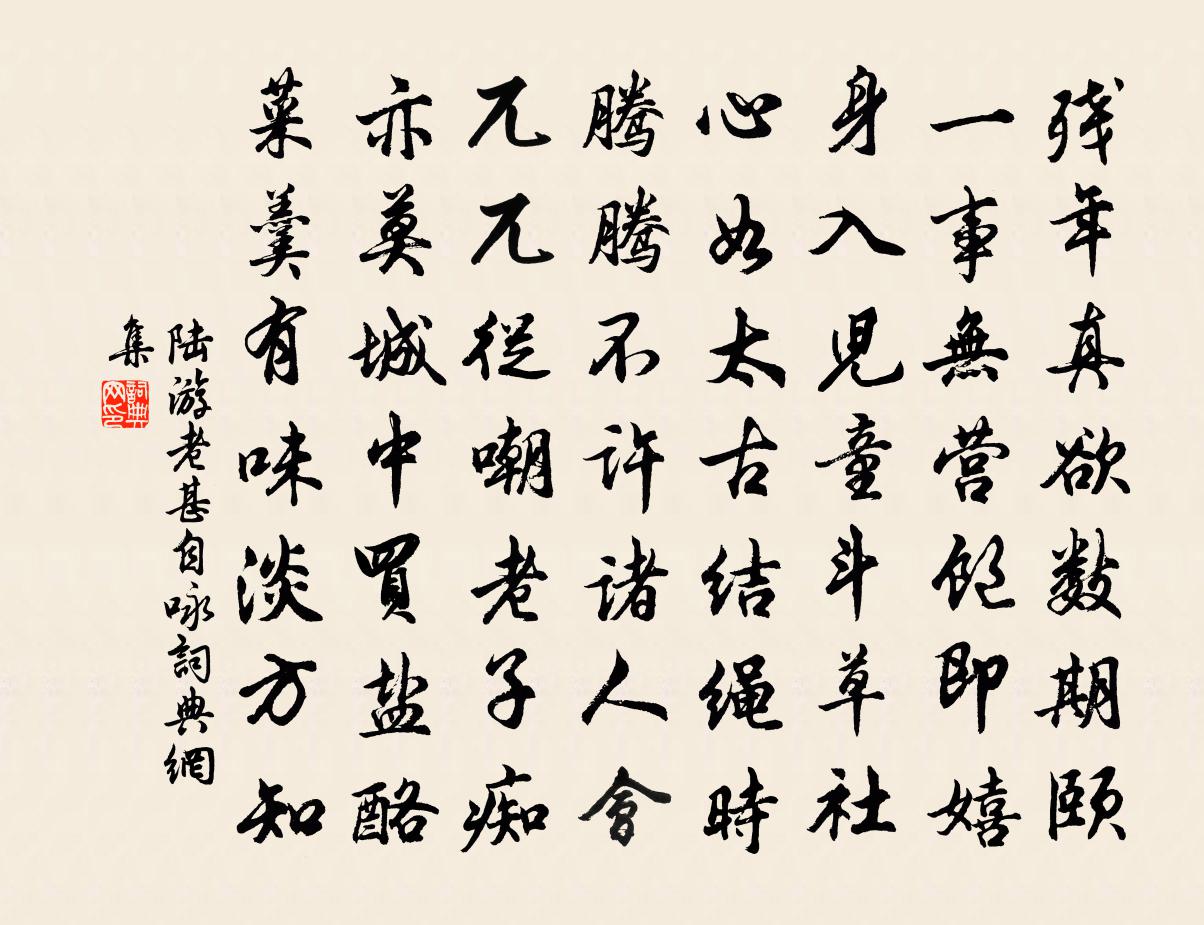 残年真欲数期颐
一事無营饱即嬉
身入児童斗草社
心如太古结绳時
腾腾不许诸人會
兀兀從嘲老子痴
亦莫城中買盐酪
菜羹有味淡方知
陆游老甚自咏詞典網
集
詞典网印